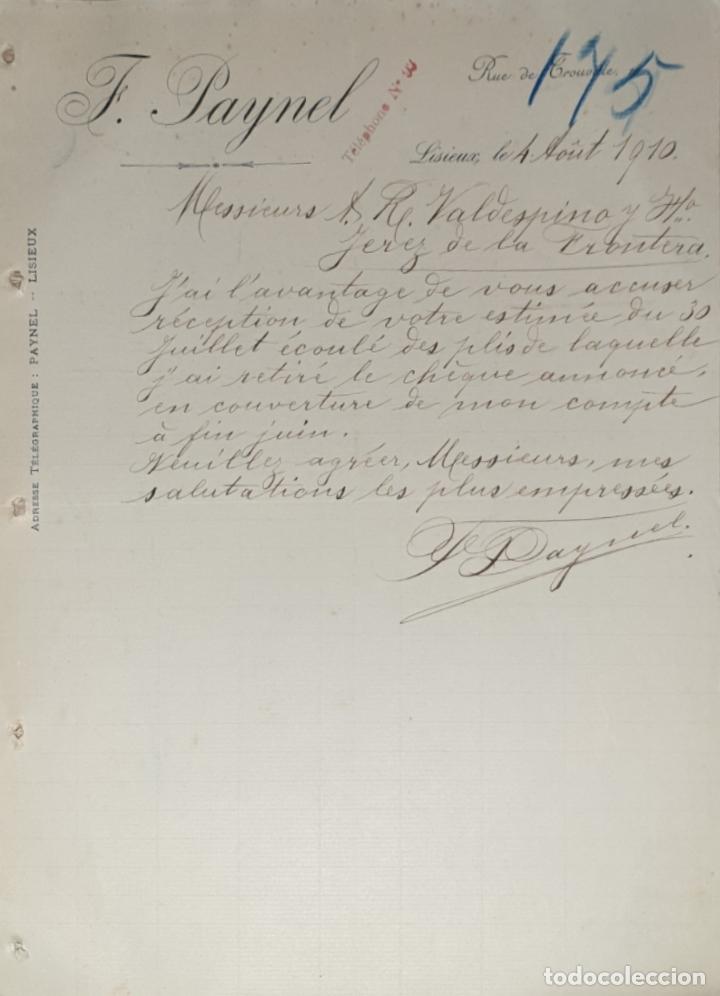 F. Paynel
Téléphone Nº
Rue de Trouville.
175
Lisieux, le 4 Août 1910.
Messieurs A. R. Valdespino y Hno
Jerez de la Frontera.
J'ai l'avantage de vous accuser
réception de votre estimée du 30
Juillet écoulé des plis de laquelle
j'ai retiré le chèque annoncé,
en couverture de mon compte
à fin juin.
Veuillez agréer, Messieurs, mes
salutations les plus empressées.
F Paynel.
ADRESSE TÉLÉGRAPHIQUE : PAYNEL -- LISIEUX
todocoleccion